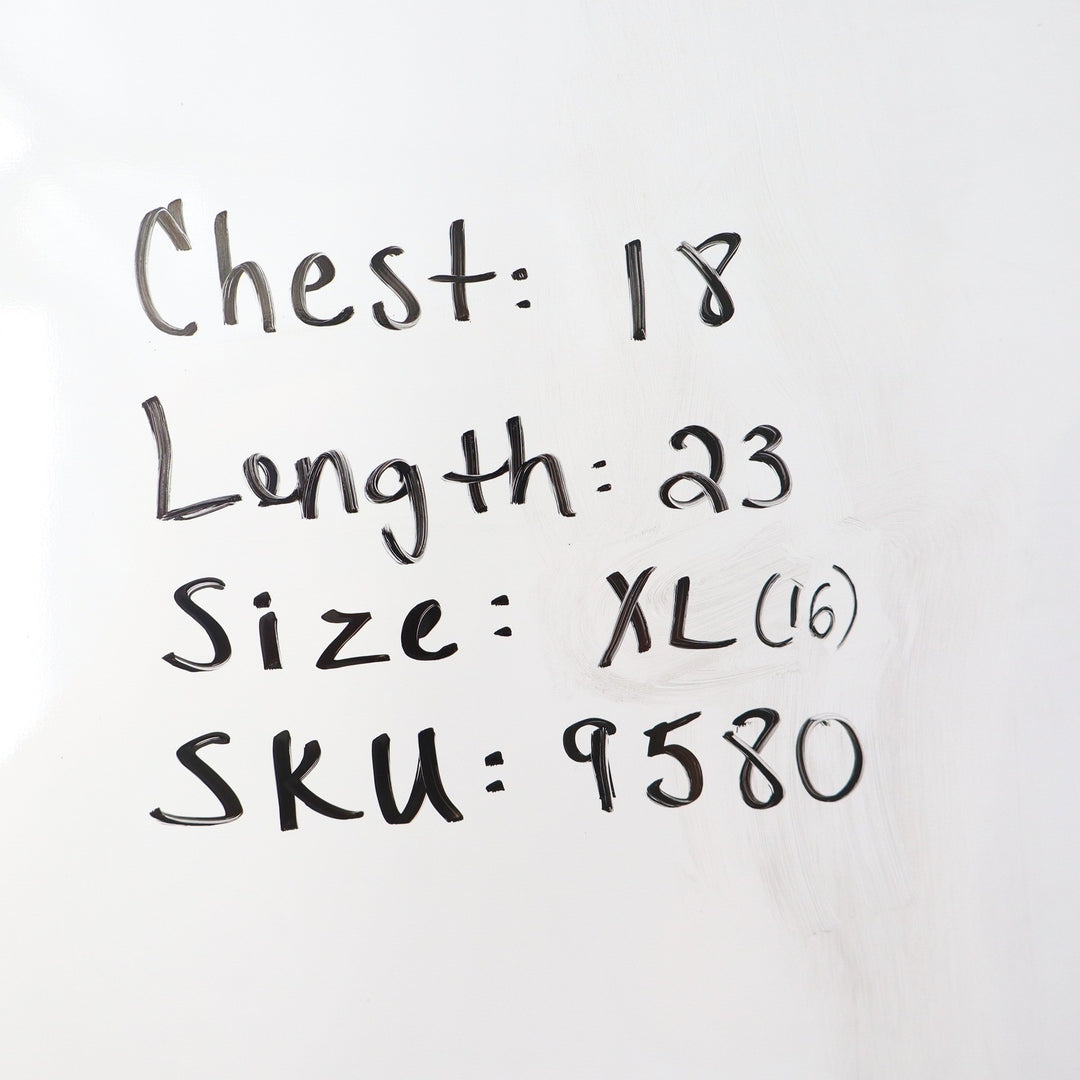 Chest: 18
Length: 23
Size: XL (16)
SKU: 9580